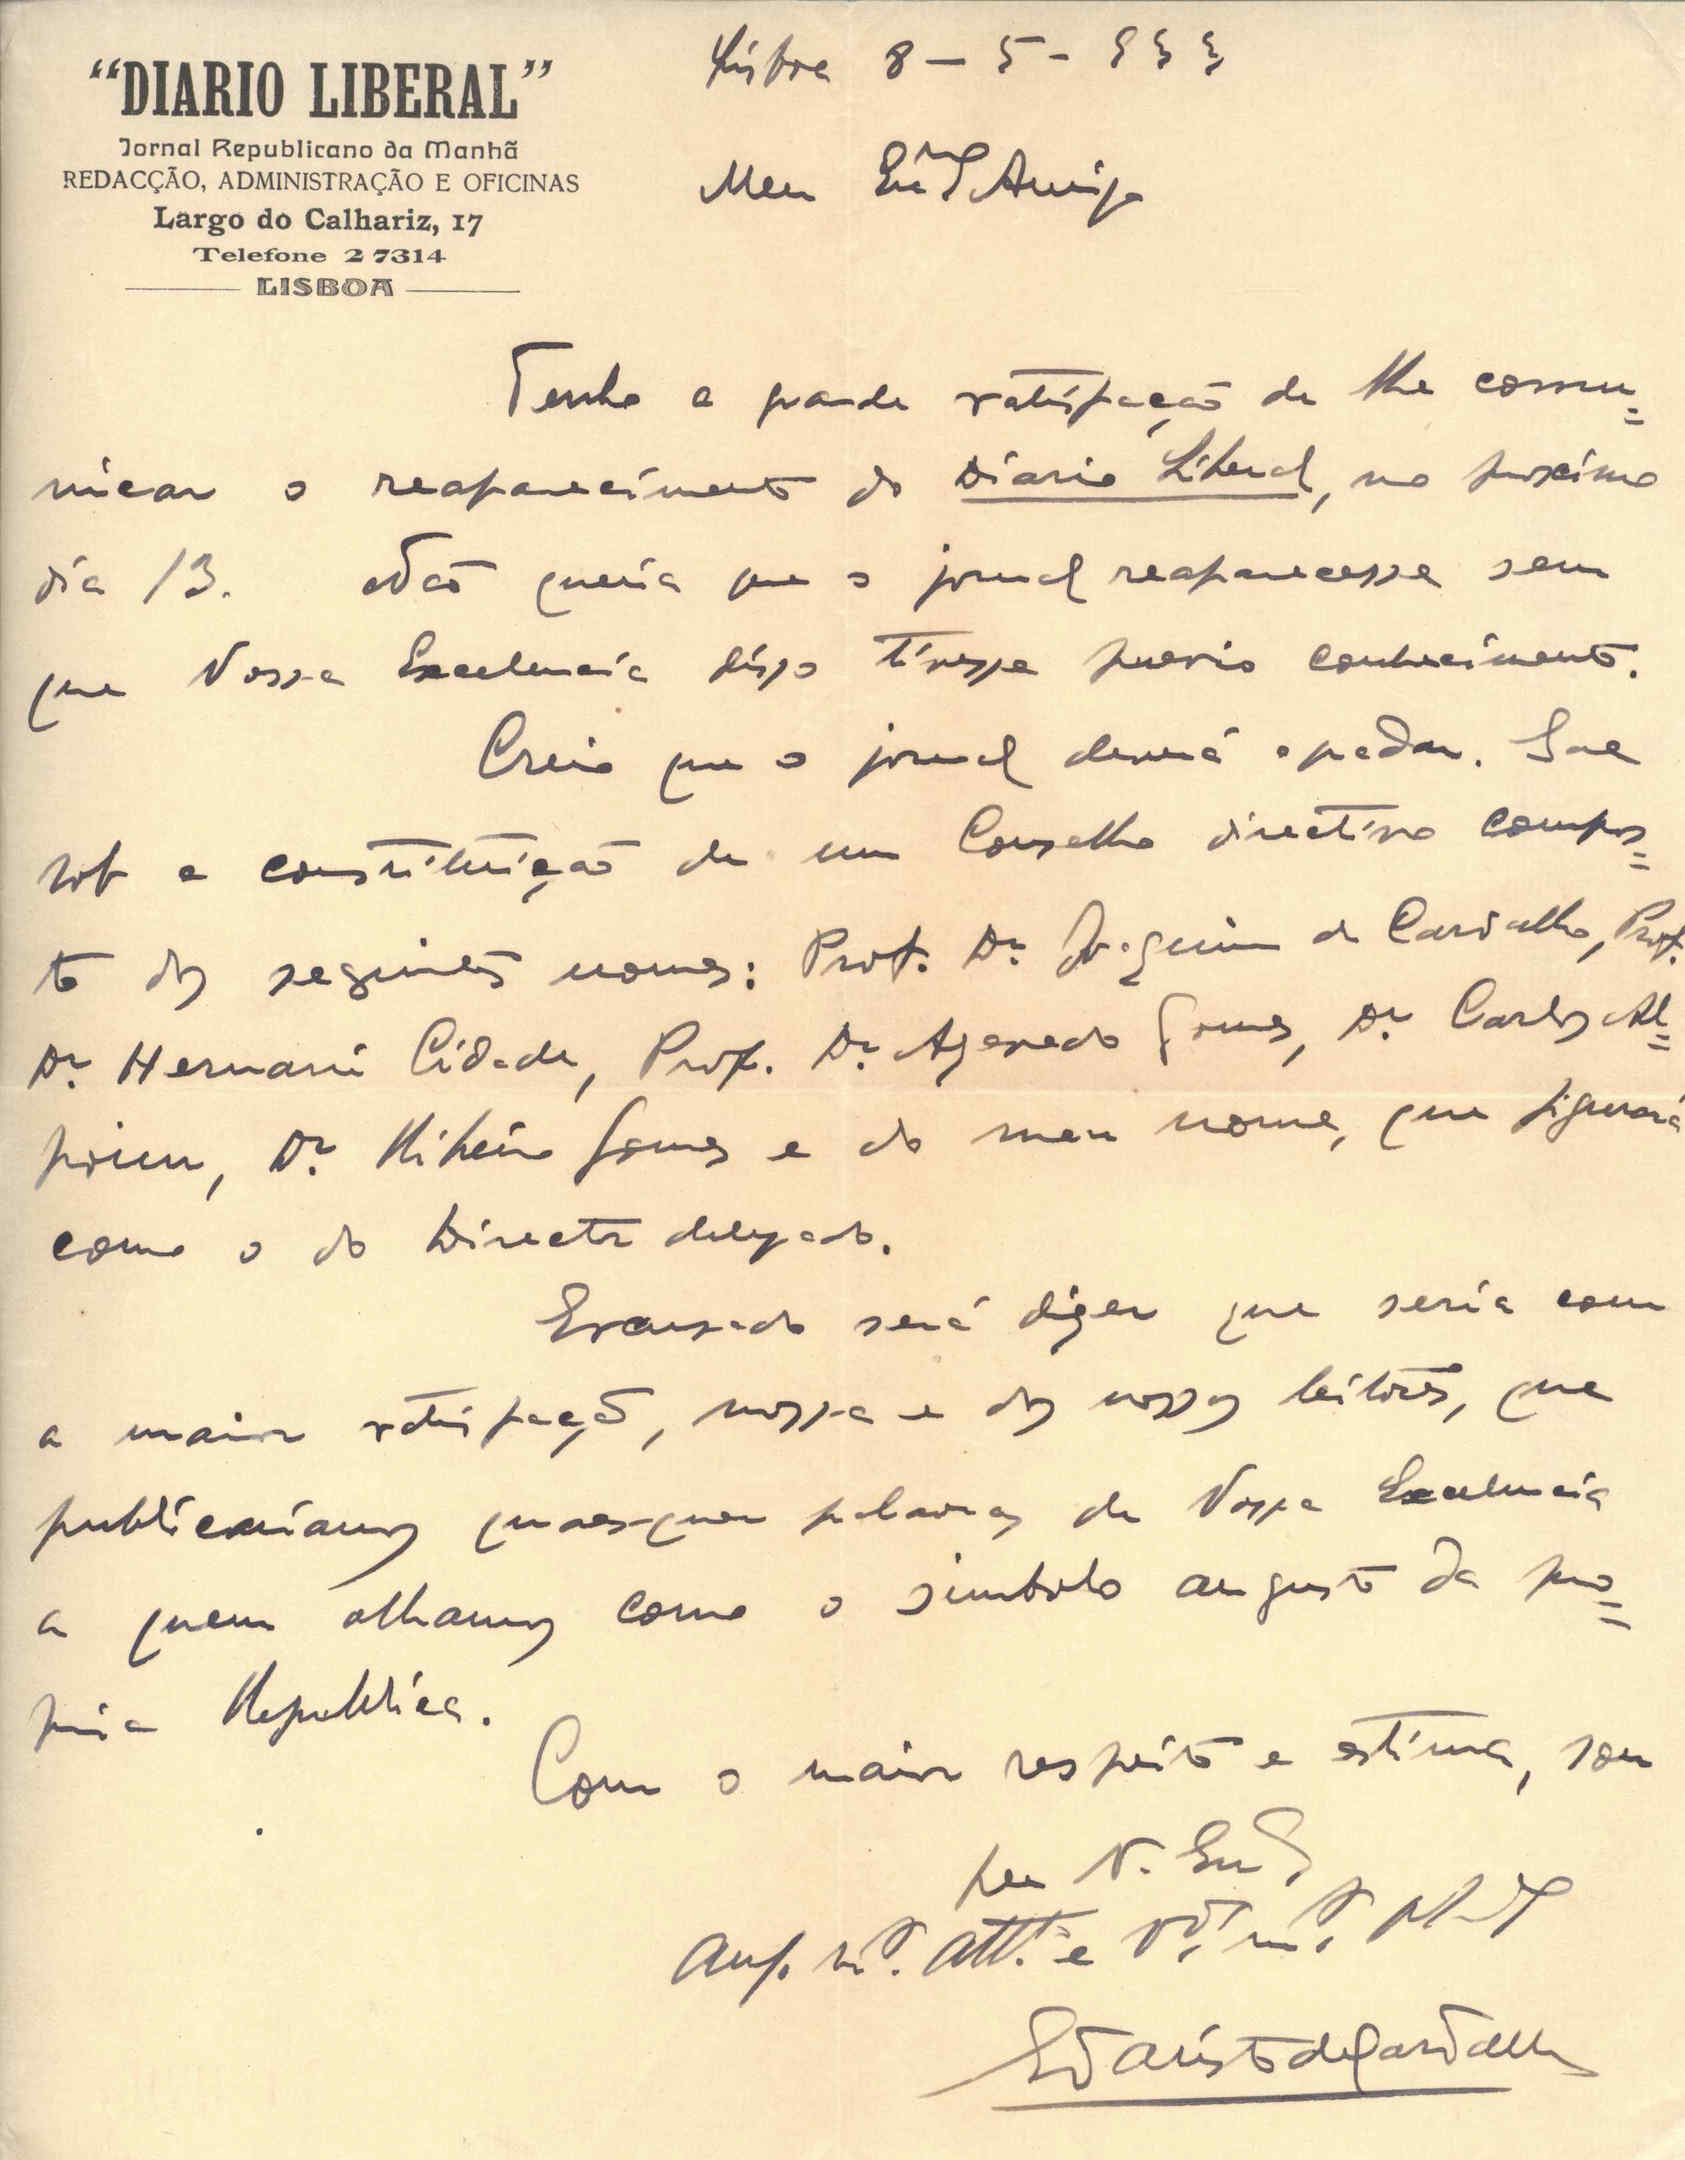 "DIARIO LIBERAL"
Jornal Republicano da Manhã
REDACÇÃO, ADMINISTRAÇÃO E OFICINAS
Largo do Calhariz, 17
Telefone 2 7314
LISBOA
Lisboa 8-5-933
Meu Exmo Amigo
Tenho a grande satisfação de lhe comu=
nicar o reaparecimento do Diario Liberal, no proximo
dia 13. Não queria que o jornal reaparecesse sem
que Vossa Excelencia disso tivesse previo conhecimento.
Creio que o jornal deverá agradar. Sae
sob a constituição de um Conselho directivo compos=
to dos seguintes nomes: Prof. Dr. Joaquim de Carvalho, Prof.
Dr. Hernani Cidade, Prof. Dr. Azevedo Gomes, Dr. Carlos Al=
poim, Dr. Ribeiro Gomes e do meu nome, que figurará
como o do Director delegado.
Escusado será dizer que seria com
a maior satisfação, nossa e dos nossos leitores, que
publicariamos quaesquer palavras de Vossa Excelencia
a quem olhamos como o simbolo augusto da pro=
pria Republica.
Com o maior respeito e estima, sou
de V. Exa
Amo. mto. atto. e
Evaristo de Carvalho